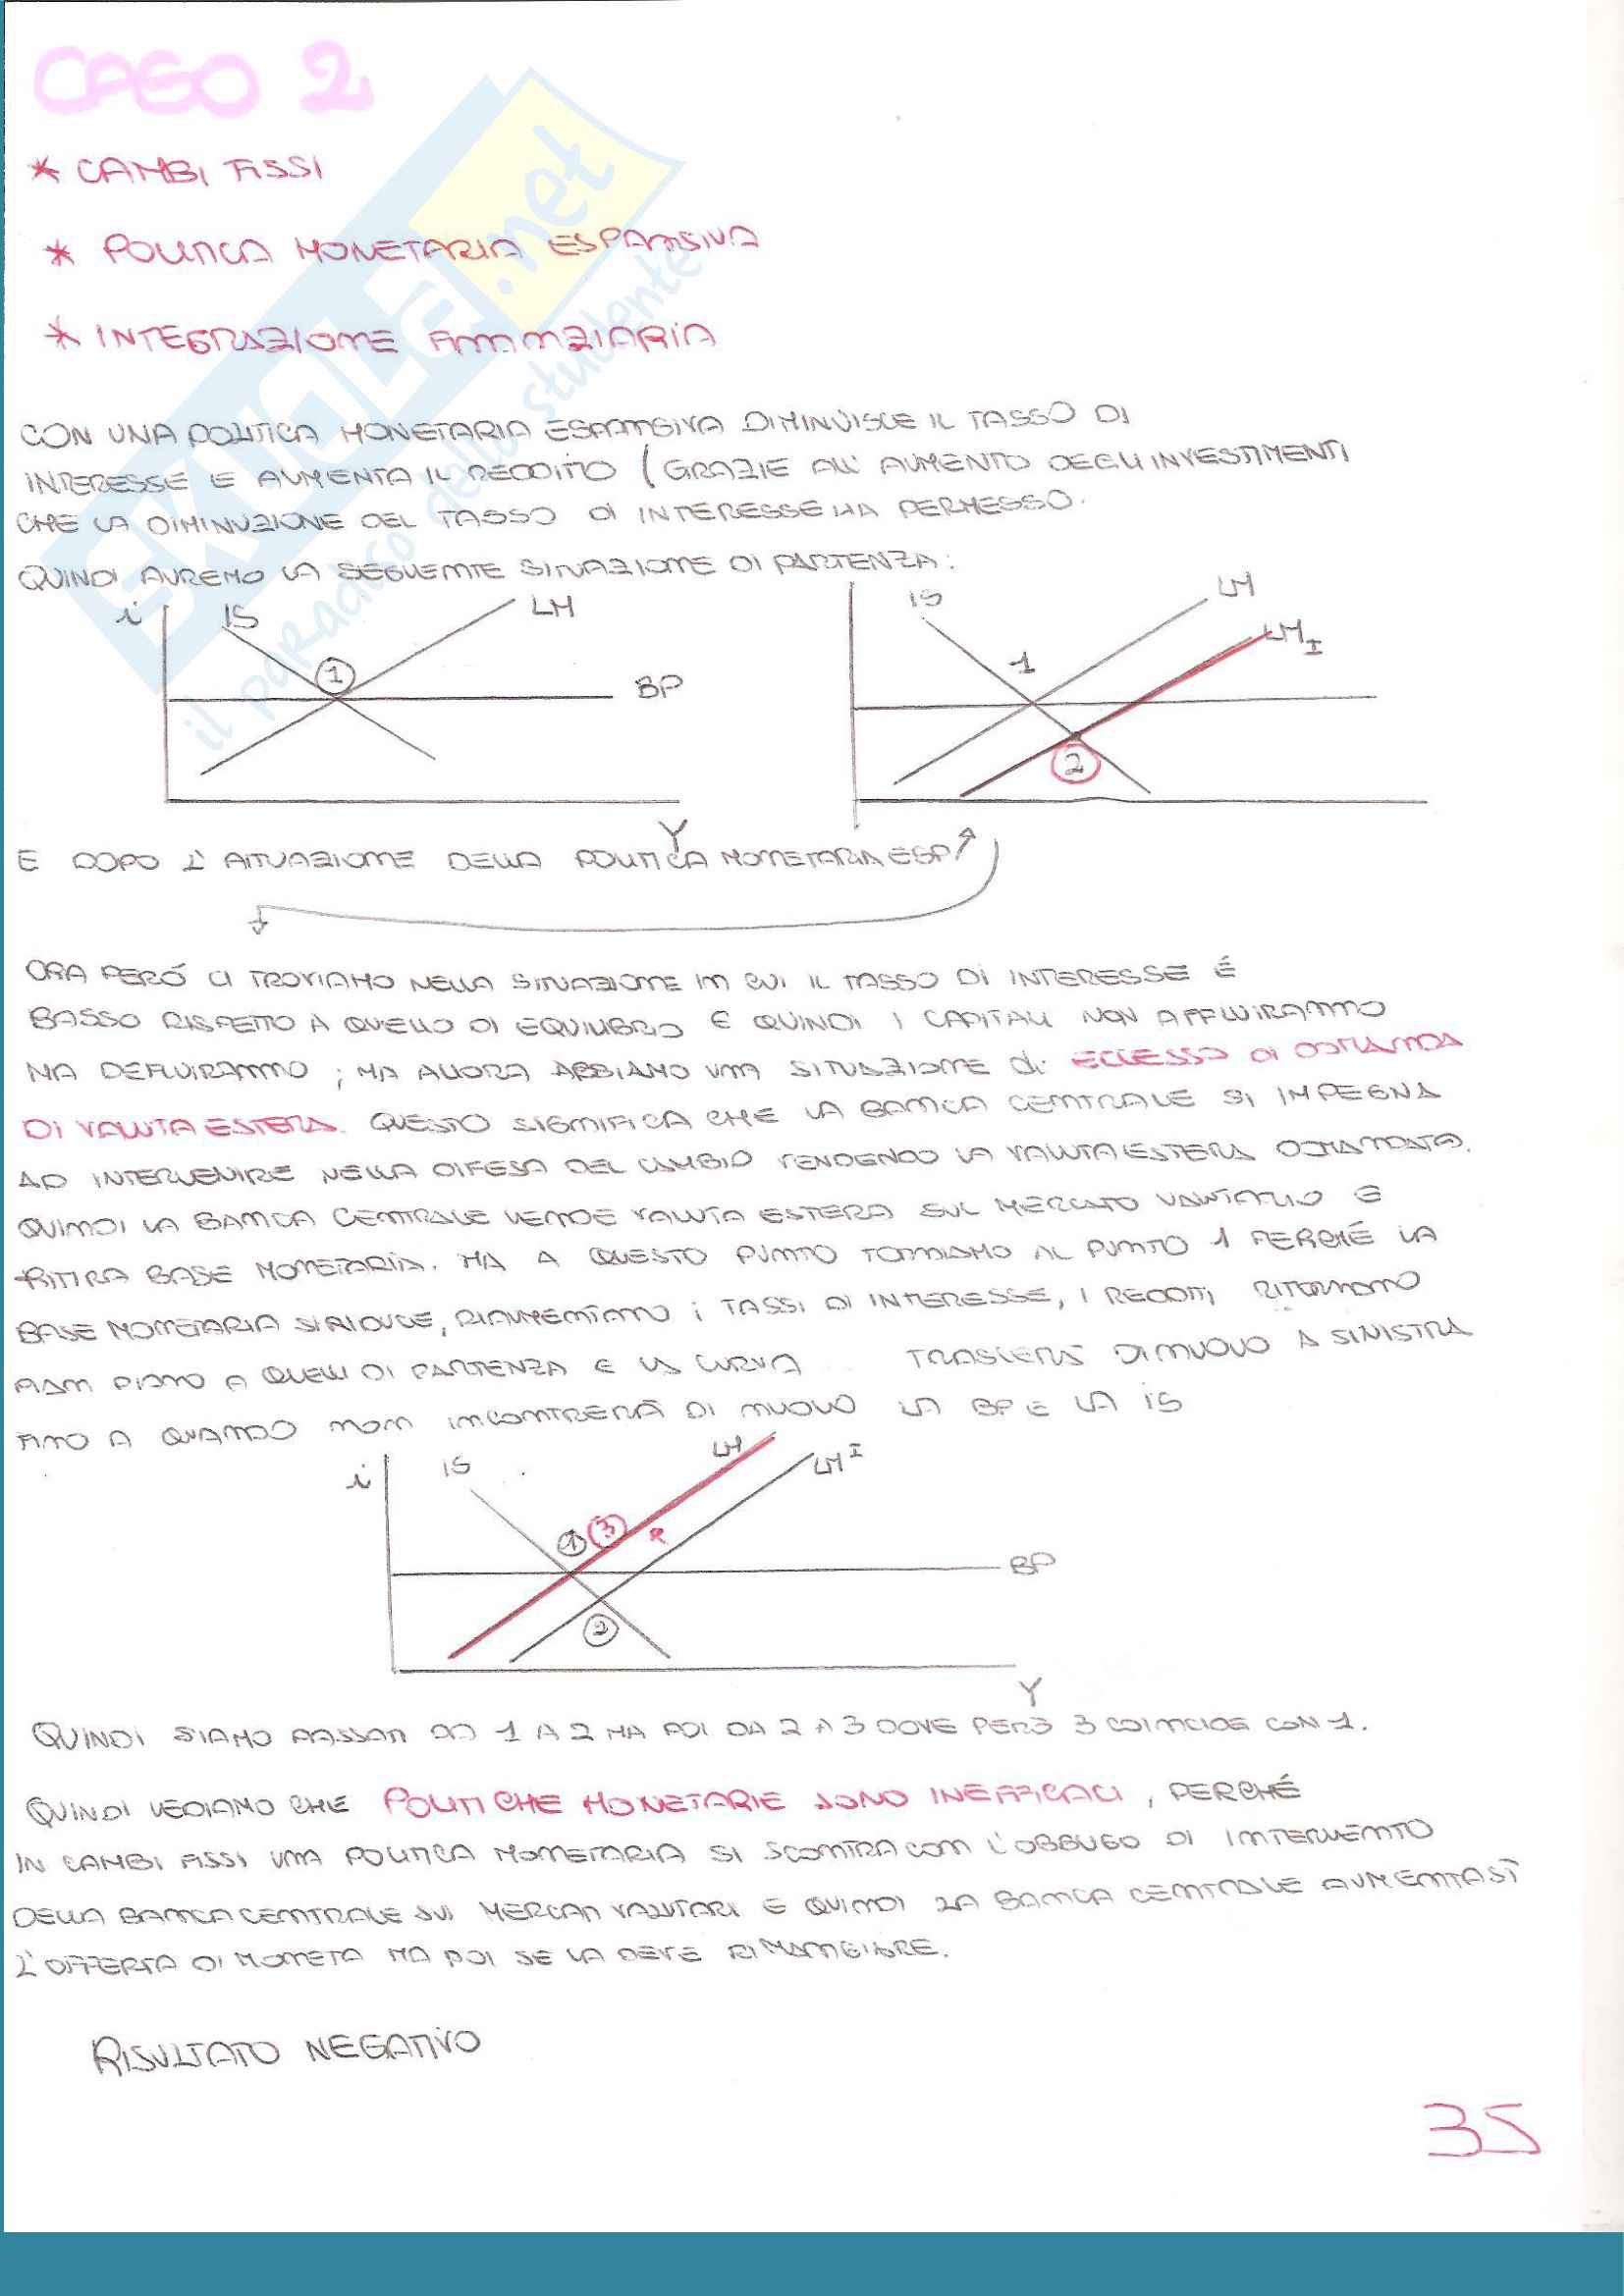 CASO 2
* CAMBI FISSI
* POLITICA MONETARIA ESPANSIVA
* INTEGRAZIONE FINANZIARIA
CON UNA POLITICA MONETARIA ESPANSIVA DIMINUISCE IL TASSO DI
INTERESSE E AUMENTA IL REDDITO (GRAZIE ALL' AUMENTO DEGLI INVESTIMENTI
CHE LA DIMINUZIONE DEL TASSO DI INTERESSE HA PERMESSO.
QUINDI AVREMO LA SEGUENTE SITUAZIONE DI PARTENZA:
i IS LM
1
BP
Y
IS LM
LM I
1
2
E DOPO L' ATTUAZIONE DELLA POLITICA MONETARIA ESP
ORA PERÓ CI TROVIAMO NELLA SITUAZIONE IN CUI IL TASSO DI INTERESSE É
BASSO RISPETTO A QUELLO DI EQUILIBRIO E QUINDI I CAPITALI NON AFFLUIRANNO
MA DEFLUIRANNO ; MA ALLORA ABBIAMO UNA SITUAZIONE di ECCESSO DI DOMANDA
DI VALUTA ESTERA. QUESTO SIGNIFICA CHE LA BANCA CENTRALE SI IMPEGNA
AD INTERVENIRE NELLA DIFESA DEL CAMBIO VENDENDO LA VALUTA ESTERA DOMANDATA.
QUINDI LA BANCA CENTRALE VENDE VALUTA ESTERA SUL MERCATO VALUTARIO E
RITIRA BASE MONETARIA. MA A QUESTO PUNTO TORNIAMO AL PUNTO 1 PERCHÉ LA
BASE MONETARIA SI RIDUCE, RIAUMENTANO i TASSI DI INTERESSE, I REDDITI RITORNANO
PIAN PIANO A QUELLI DI PARTENZA E LA CURVA TRASLERÀ DI NUOVO A SINISTRA
FINO A QUANDO NON INCONTRERÀ DI NUOVO LA BP E LA IS
i IS LM LM I
1 3 R
BP
2
Y
QUINDI SIAMO PASSATI DA 1 A 2 MA POI DA 2 A 3 DOVE PERÒ 3 COINCIDE CON 1.
QUINDI VEDIAMO CHE POLITICHE MONETARIE SONO INEFFICACI, PERCHÉ
IN CAMBI FISSI UNA POLITICA MONETARIA SI SCONTRA CON L'OBBLIGO DI INTERVENTO
DELLA BANCA CENTRALE SUI MERCATI VALUTARI E QUINDI LA BANCA CENTRALE AUMENTA SÌ
L'OFFERTA DI MONETA MA POI SE LA DEVE RIMANGIARE.
RISULTATO NEGATIVO
35
SKUOLA.net
il paradiso dello studente